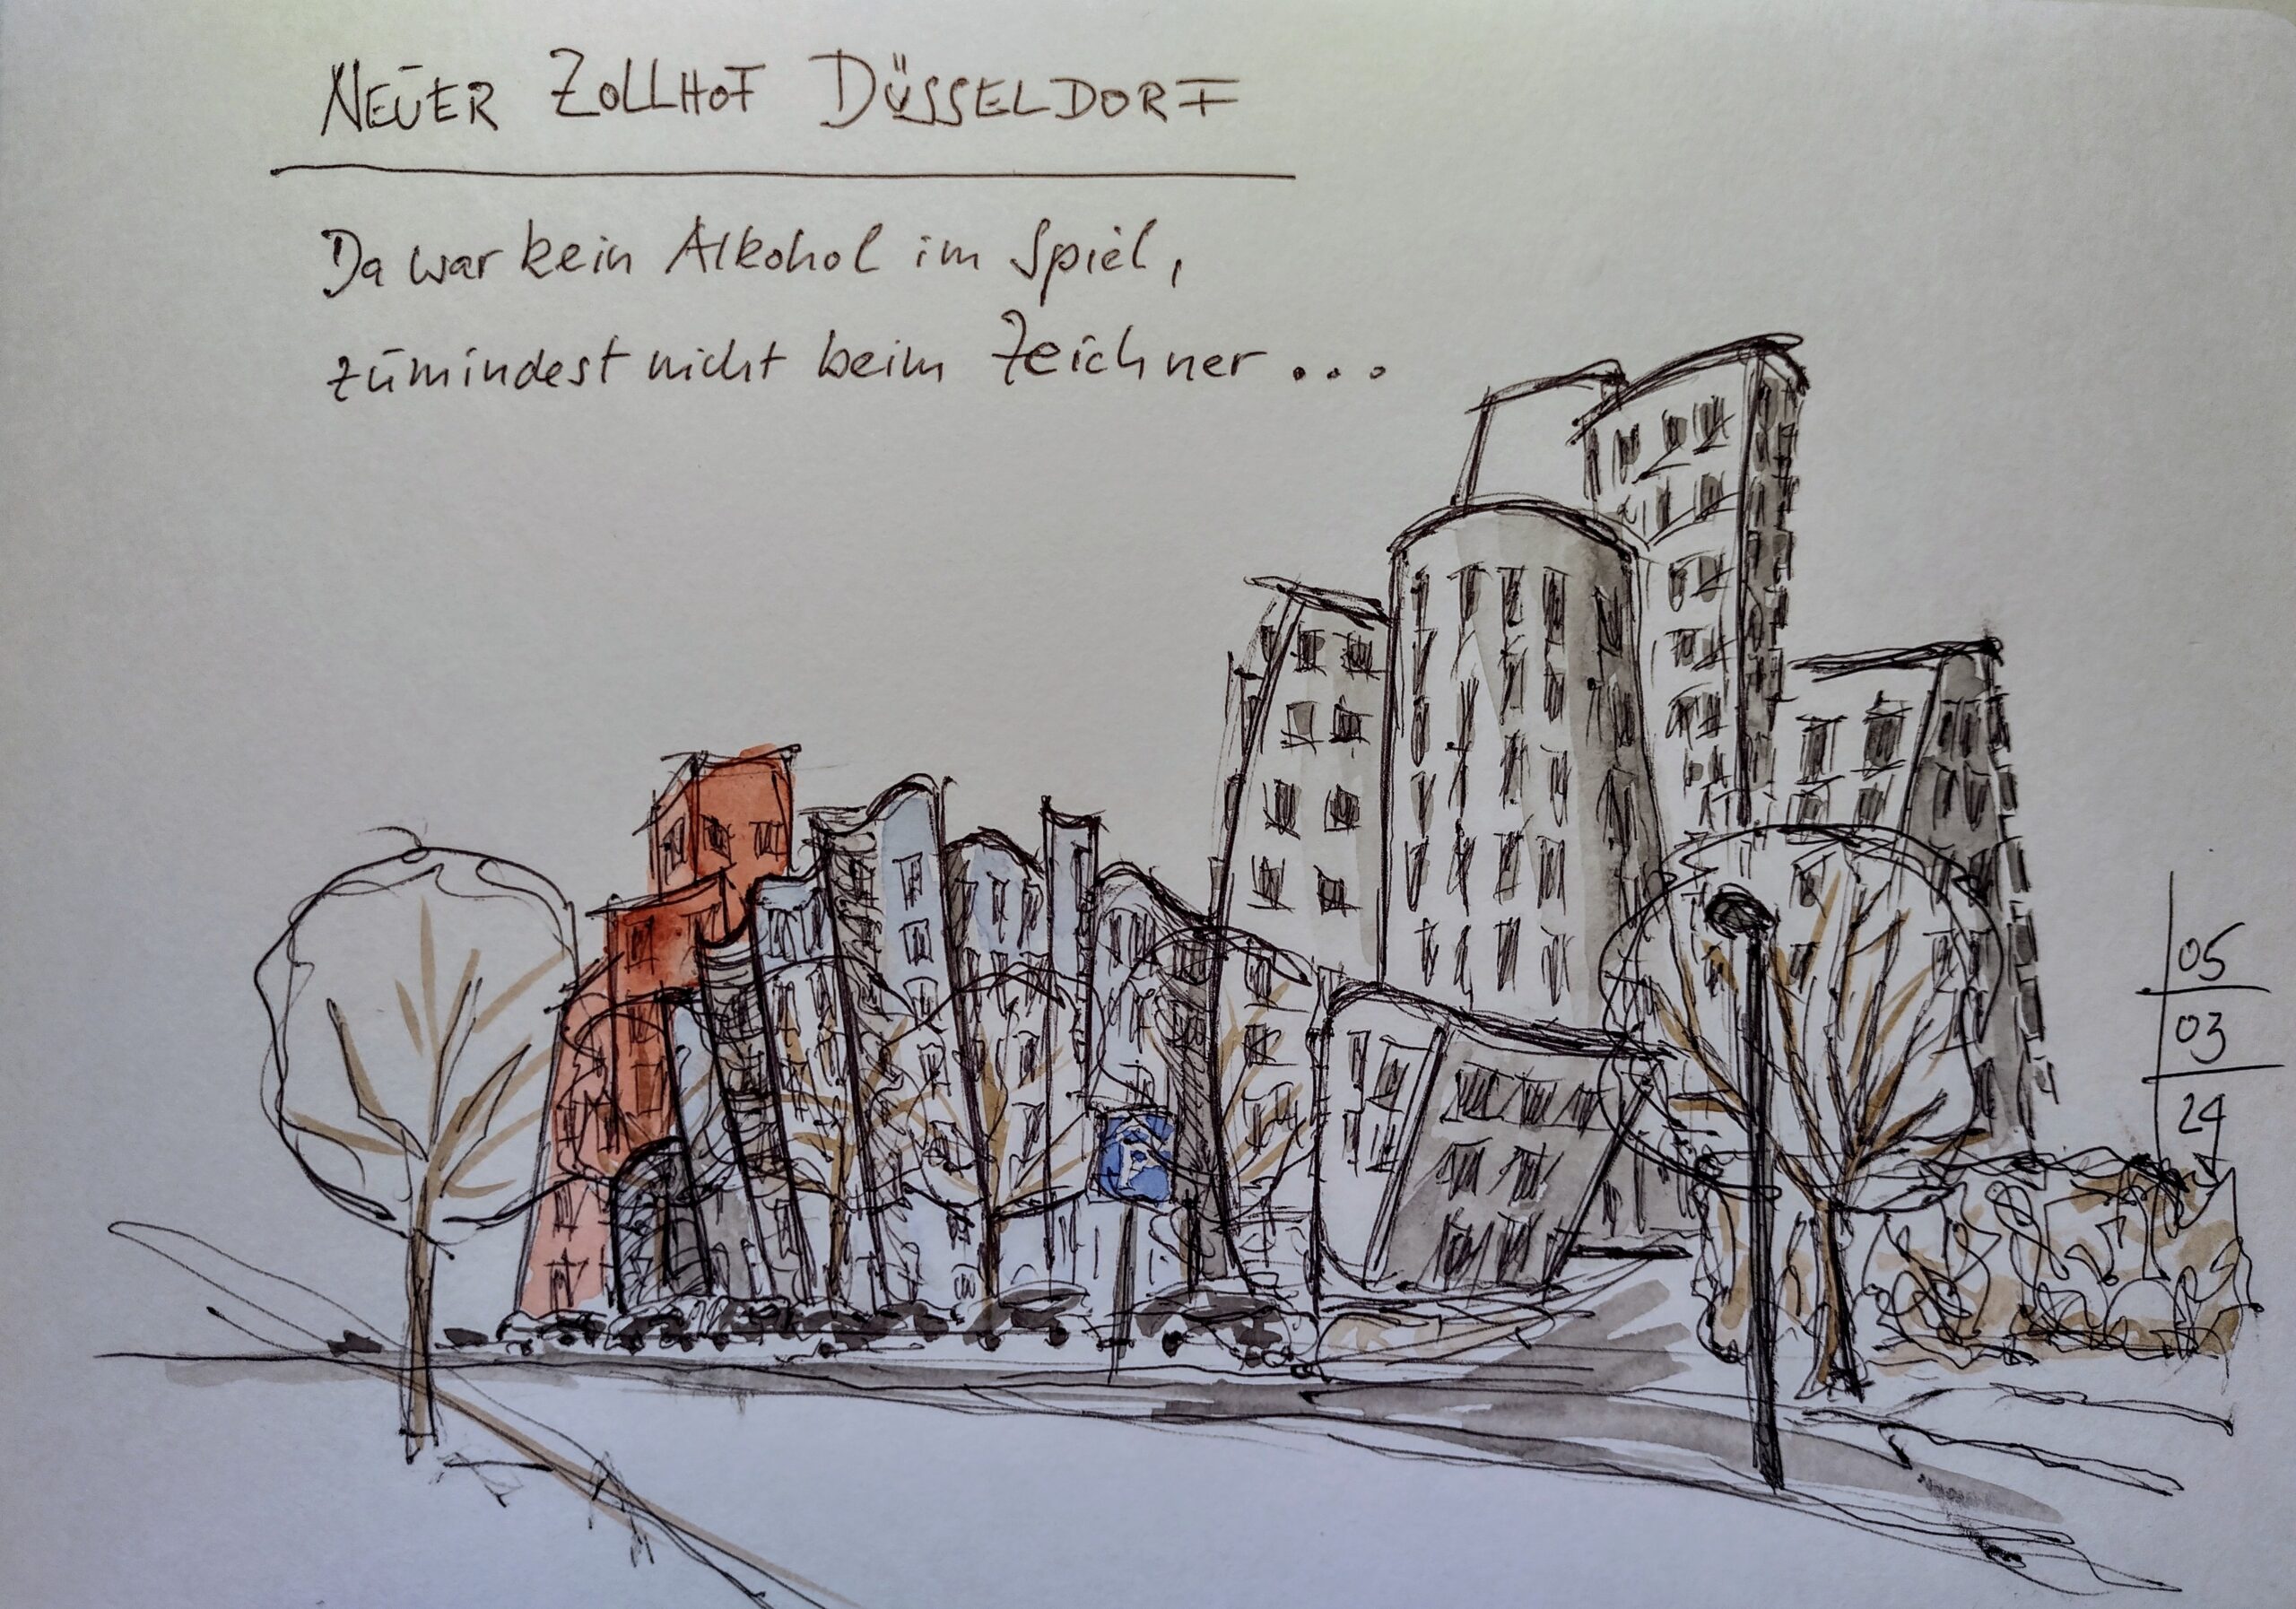 NEUER ZOLLHOF DÜSSELDORF
Da war kein Alkohol im Spiel,
zumindest nicht beim Zeichner...
P
05
03
24